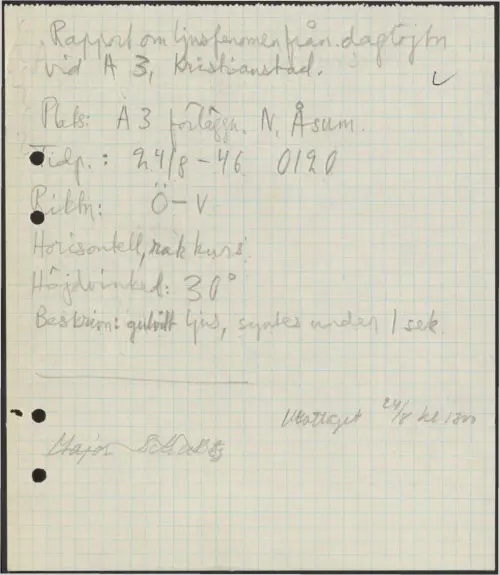 Rapport om ljusfenomen från dagtojtn
vid A 3, Kristianstad.
Plats: A 3 förläggn. N. Åsum.
Tidp.: 24/8-46 0120
Riktn: Ö-V
Horisontell, rak kurs.
Höjdvinkel: 30°
Beskrivn: gulvitt ljus, syntes under 1 sek.
24/8 kl
Major